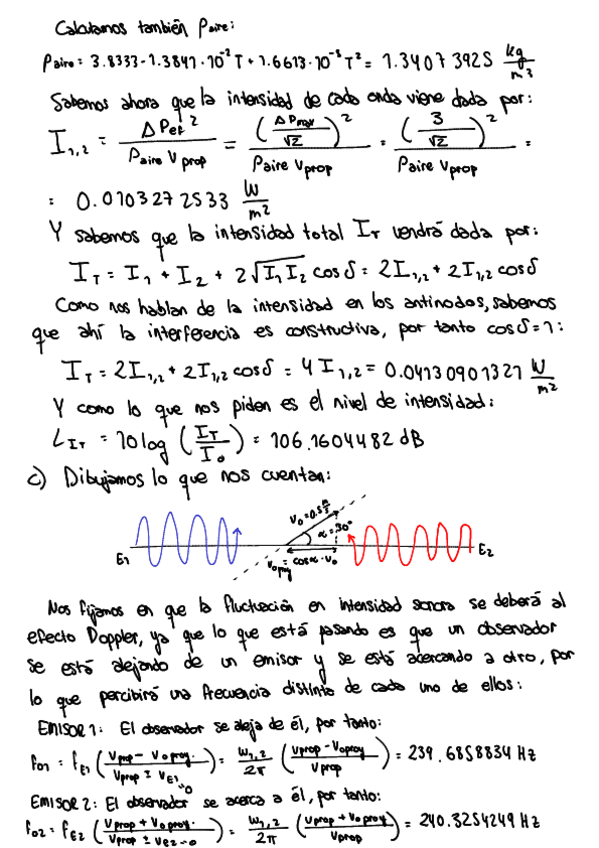 Calculamos también ρaire:
ρaire = 3.8333-1.3841·10⁻² T + 1.6613·10⁻⁵ T² = 1.34073925 kg/m³
Sabemos ahora que la intensidad de cada onda viene dada por:
I₁,₂ = ΔPef²/(ρaire Vprop) = (ΔPmax/√2)²/(ρaire Vprop) = (3/√2)²/(ρaire Vprop) =
= 0.0103272533 W/m²
Y sabemos que la intensidad total I_T vendrá dada por:
I_T = I₁ + I₂ + 2√(I₁I₂) cosδ = 2I₁,₂ + 2I₁,₂ cosδ
Como nos hablan de la intensidad en los antinodos, sabemos
que ahí la interferencia es constructiva, por tanto cosδ=1:
I_T = 2I₁,₂ + 2I₁,₂ cosδ = 4I₁,₂ = 0.04130901321 W/m²
Y como lo que nos piden es el nivel de intensidad:
L_IT = 10log (I_T/I₀) = 106.1604482 dB
c) Dibujamos lo que nos cuentan:
V₀=0.5 m/s
α=30°
E₁
E₂
V₀proy = cosα·V₀
Nos fijamos en que la fluctuación en intensidad sonora se deberá al
efecto Doppler, ya que lo que está pasando es que un observador
se está alejando de un emisor y se está acercando a otro, por
lo que percibirá una frecuencia distinta de cada uno de ellos:
EMISOR 1: El observador se aleja de él, por tanto:
f₀₁ = f_E1 ((Vprop - V₀proy.)/(Vprop ± V_E1→0)) = ω₁,₂/2π ((Vprop - V₀proy)/Vprop) = 239.6858834 Hz
EMISOR 2: El observador se acerca a él, por tanto:
f₀₂ = f_E2 ((Vprop + V₀proy.)/(Vprop ± V_E2→0)) = ω₁,₂/2π ((Vprop + V₀proy)/Vprop) = 240.3254249 Hz